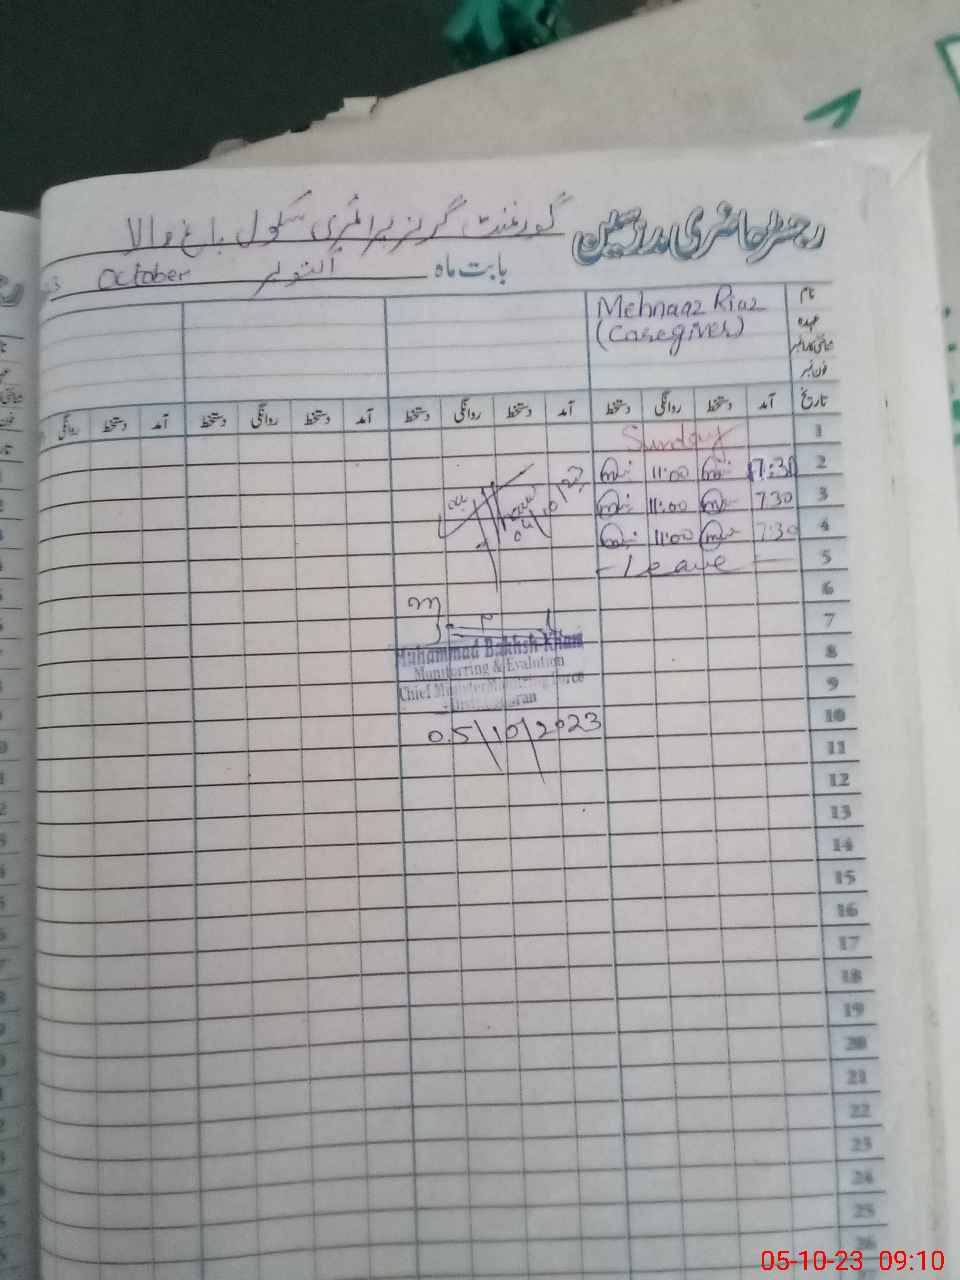 رجسٹر حاضری مدرسین گورنمنٹ گرلز پرائمری سکول باغ والا
بابت ماہ اکتوبر October
نام Mehnaaz Riaz
عہدہ (Caregiver)
شناختی کارڈ نمبر
فون نمبر
تاریخ آمد دستخط روانگی دستخط آمد دستخط روانگی دستخط آمد دستخط روانگی دستخط آمد دستخط روانگی
1 Sunday
2 7:30 11:00
3 7:30 11:00
4 7:30 11:00
04/10/23
5 Leave
6
7
8
9
10
11
12
13
14
15
16
17
18
19
20
21
22
23
24
25
26
Muhammad Bakhsh Khan
Monitorring & Evalution
Chief Minister Monitoring Force
05/10/2023
05-10-23 09:10